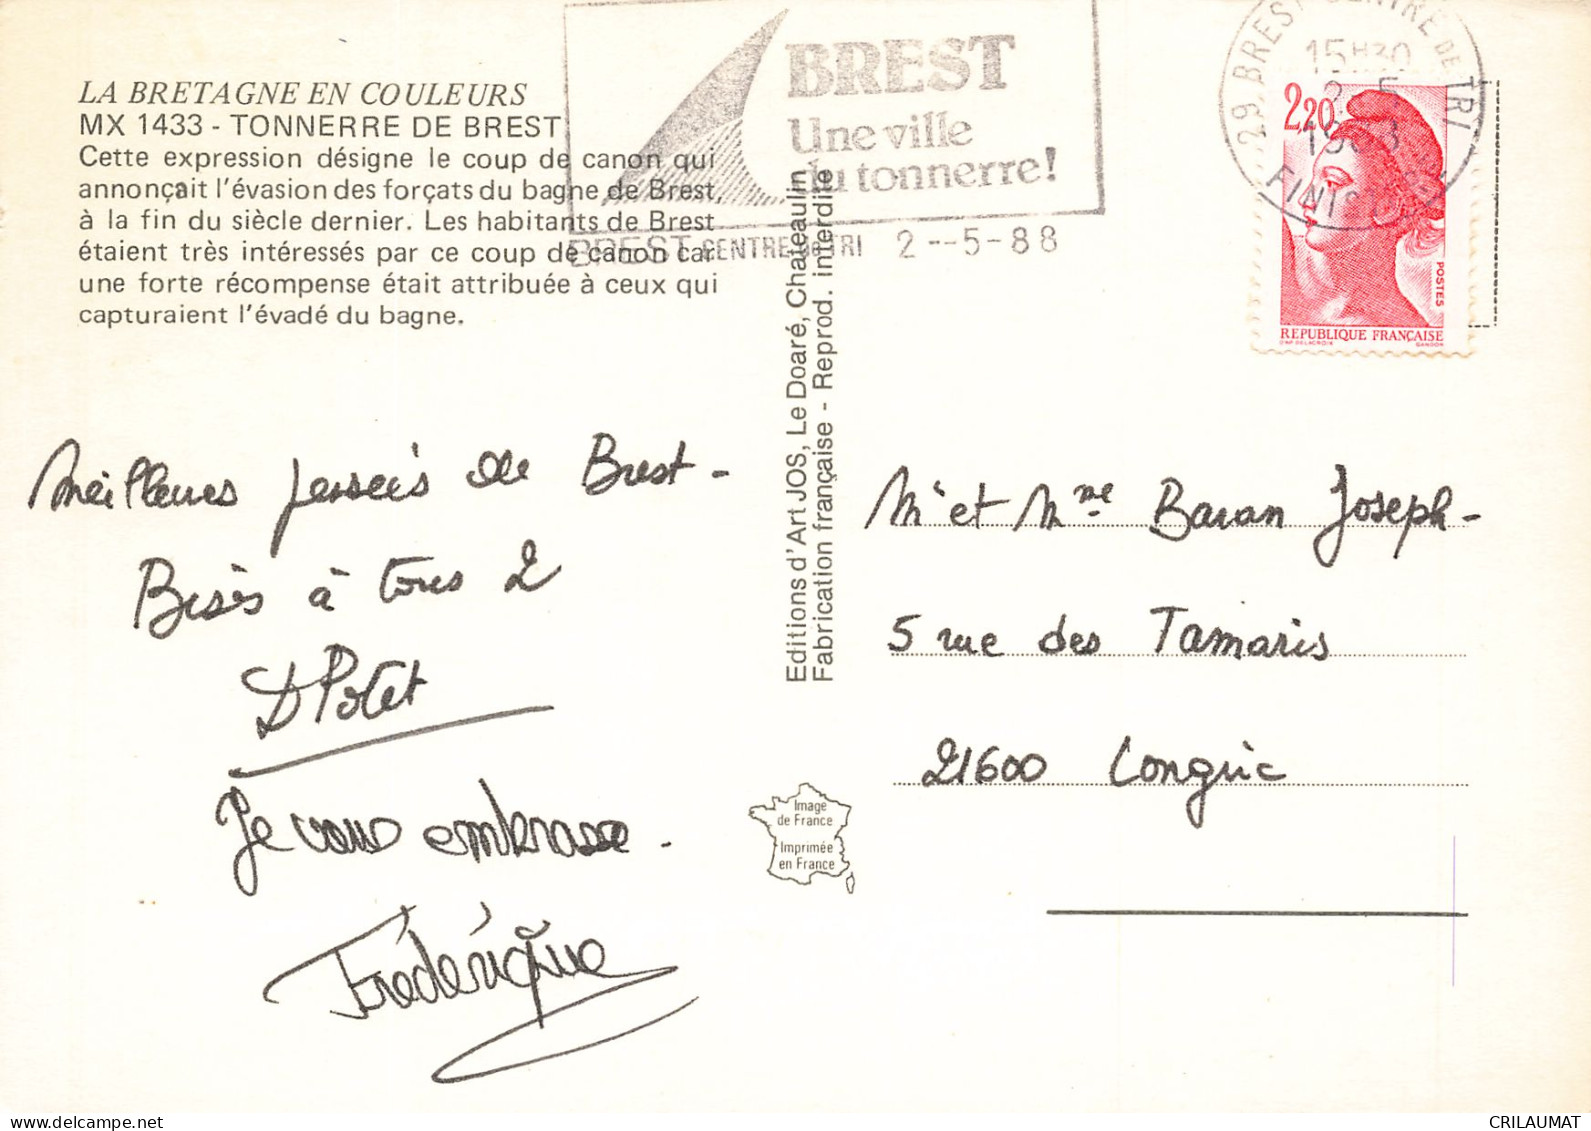 LA BRETAGNE EN COULEURS
MX 1433 - TONNERRE DE BREST
Cette expression désigne le coup de canon qui
annonçait l'évasion des forçats du bagne de Brest,
à la fin du siècle dernier. Les habitants de Brest
étaient très intéressés par ce coup de canon car
une forte récompense était attribuée à ceux qui
capturaient l'évadé du bagne.
BREST
Une ville
du tonnerre!
BREST CENTRE DE TRI 2--5-88
29 BREST CENTRE DE TRI
15H30
2-5
1988
FINISTERE
2,20
POSTES
REPUBLIQUE FRANÇAISE
D'AP. DELACROIX GANDON
Meilleures pensées de Brest -
Bisès à tous 2
D Potet
Je vous embrasse.
Frédérique
Editions d'Art JOS, Le Doaré, Chateaulin
Fabrication française - Reprod. interdite
Image
de France
Imprimée
en France
Mr et Mme Baran Joseph -
5 rue des Tamaris
21600 Longvic
CRILAUMAT